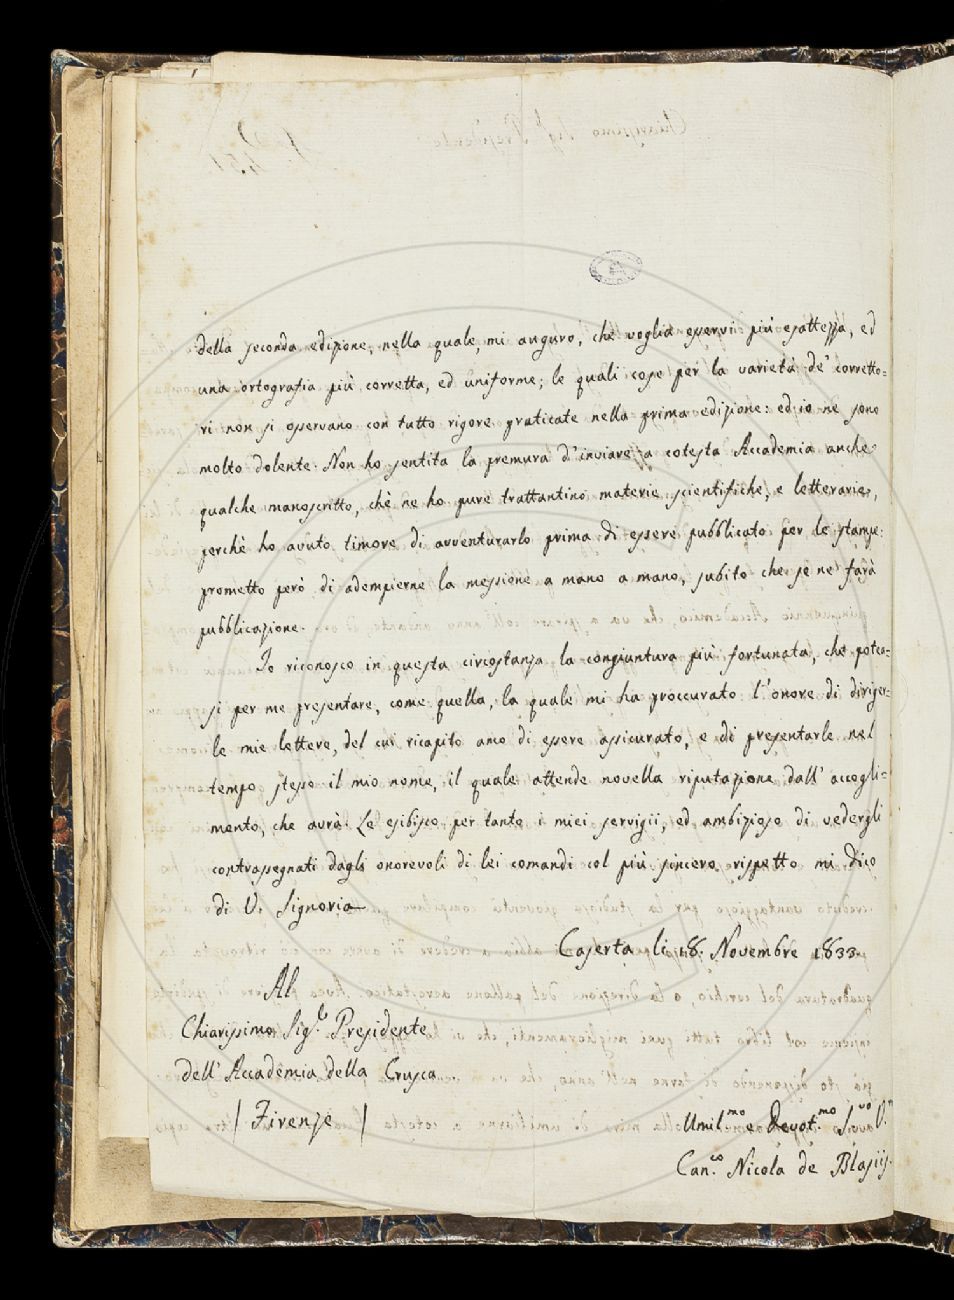 della seconda edizione, nella quale, mi auguro, che voglia esservi più esattezza, ed
una ortografia più corretta, ed uniforme; le quali cose per la varietà de' corretto=
ri non si osservano con tutto rigore praticate nella prima edizione: ed io ne sono
molto dolente. Non ho sentita la premura d'inviare a cotesta Accademia anche
qualche manoscritto, chè ne ho pure trattantino materie scientifiche, e letterarie,
perchè ho avuto timore di avventurarlo prima di essere pubblicato per le stampe:
prometto però di adempierne la messione a mano a mano, subito che se ne farà
pubblicazione.
Io riconosco in questa circostanza la congiuntura più fortunata, che potea=
si per me presentare, come quella, la quale mi ha proccurato l'onore di diriger=
le mie lettere, del cui ricapito amo di essere assicurato, e di presentarle nel
tempo stesso il mio nome, il quale attende novella riputazione dall' accogli=
mento, che avrà. Le esibisco per tanto i miei servigii, ed ambizioso di vedergli
contrassegnati dagli onorevoli di lei comandi col più sincero rispetto mi dico
di V. Signoria
Caserta li 18. Novembre 1833.
Al
Chiarissimo Sig.e Presidente
dell' Accademia della Crusca
/ Firenze /
Umil.mo e Devot.mo S.vo V.
Can.co Nicola de Blasiis.